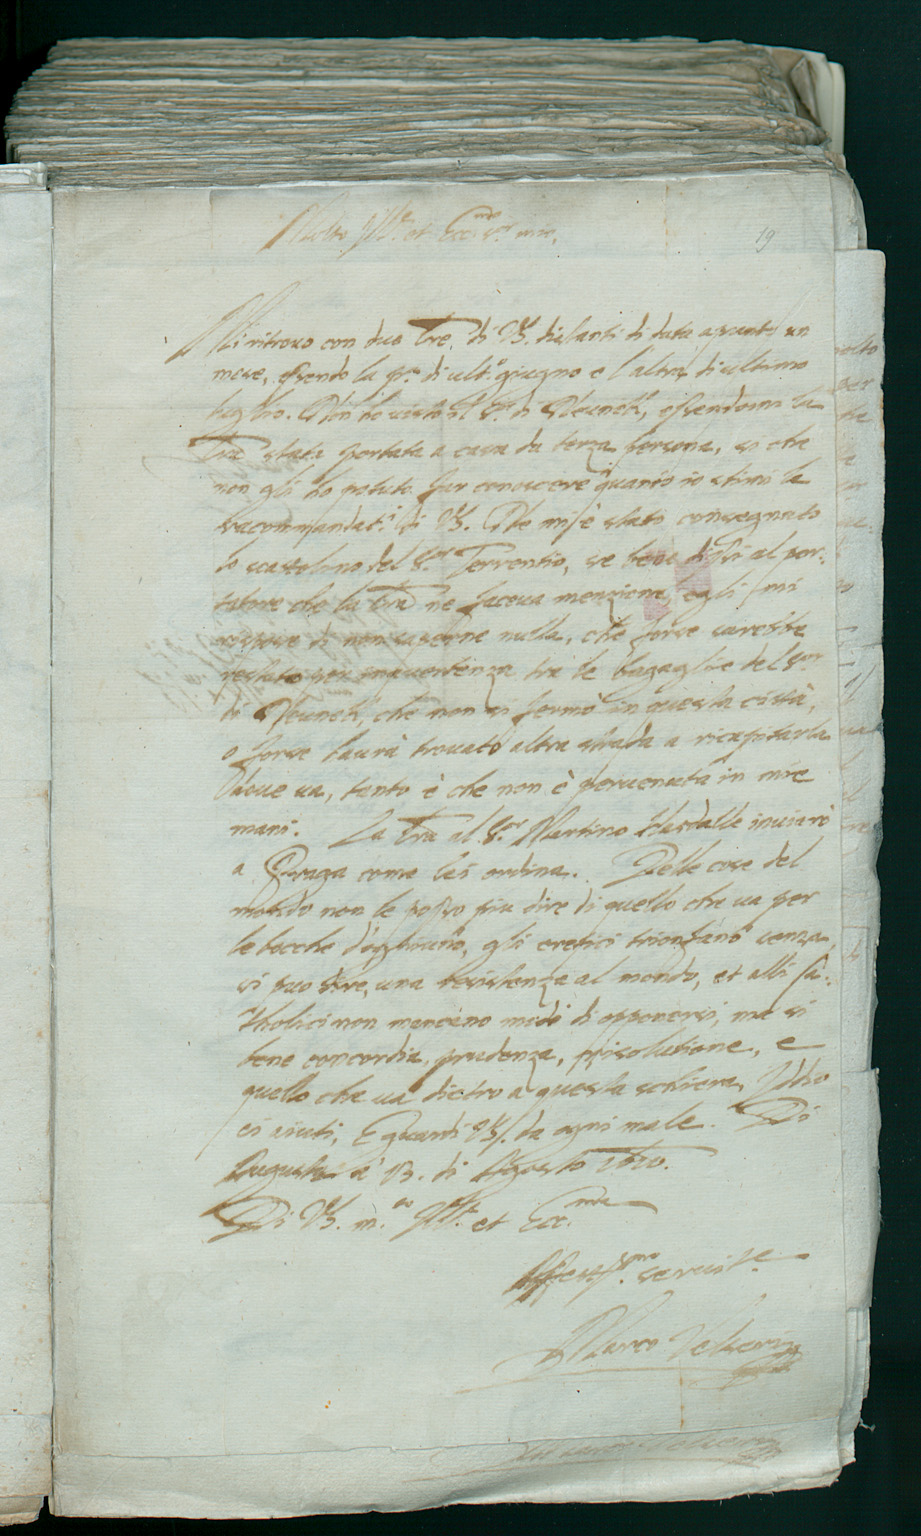 Molto Ill.re et Ecc.mo S.r mio,
19
Mi ritrovo con due Lre di VS. distanti di data apunto un
mese, essendo la p.a di ult.o giugno e l'altra di ultimo
luglio. Non ho visto il S.r di Neunek, essendomi la
Lra stata portata a casa da terza persona, si che
non gli ho potuto far conoscere quanto io stimi le
raccommandat.i di VS. Ne mi è stato consegnato
lo scatolino del S.or Terrentio, se bene dissi al por-
tatore che la Lra ne faceva menzione, egli mi
rispose di non saperne nulla, che forse sarebbe
restato per inavertenza tra le bagaglie del S.or
di Neunek, che non si fermò in questa città,
o forse haurà trovato altra strada a ricapitarla
dove va, tanto è che non è pervenuta in mie
mani. La Lra al S.or Martino Hasdalle inviarò
a Praga come lei ordina. Delle cose del
mondo non le posso piu dire di quello che va per
le bocche d'ogniuno, gli eretici trionfano senza,
si puo dire, una resistenza al mondo, et alli Ca-
tholici non mancano modi di opponersi, ma si
bene concordia, prudenza, risolutione, e
quello che va dietro a questa schiera, Iddio
ci aiuti, E guardi VS. da ogni male. Di
Augusta a' 13. di Agosto 1610.
Di VS. m.to Ill.re et Ecc.mte
Affett.mo servit.e
Marco Velseri